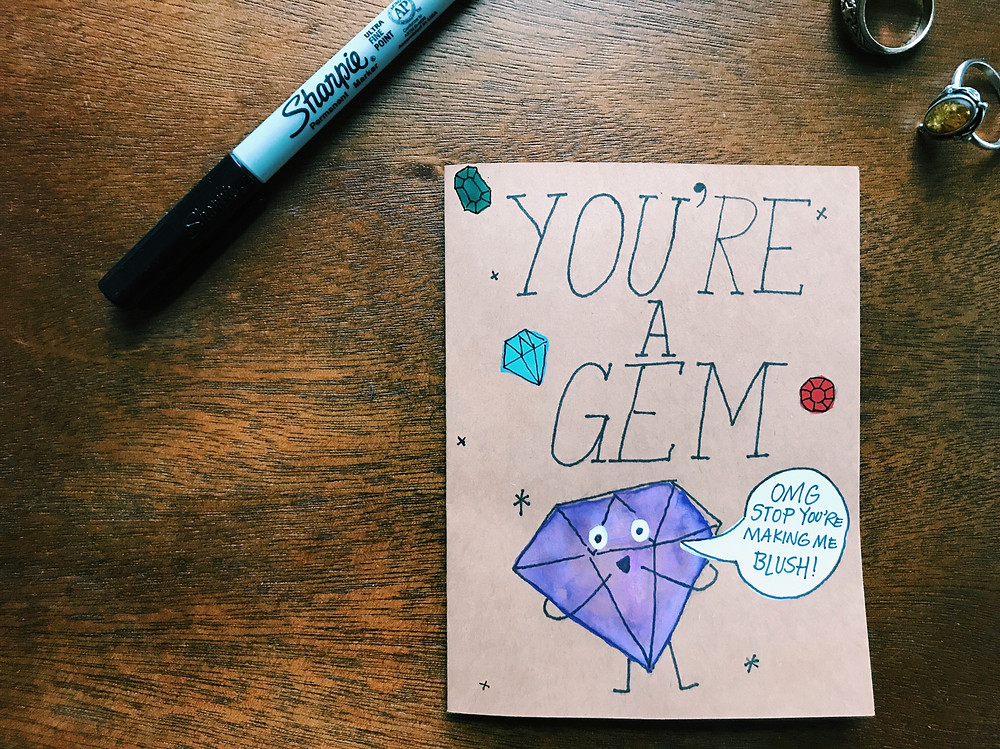 Sharpie
Permanent Marker
ULTRA
FINE
POINT
AP
YOU'RE
A
GEM
OMG
STOP YOU'RE
MAKING ME
BLUSH!